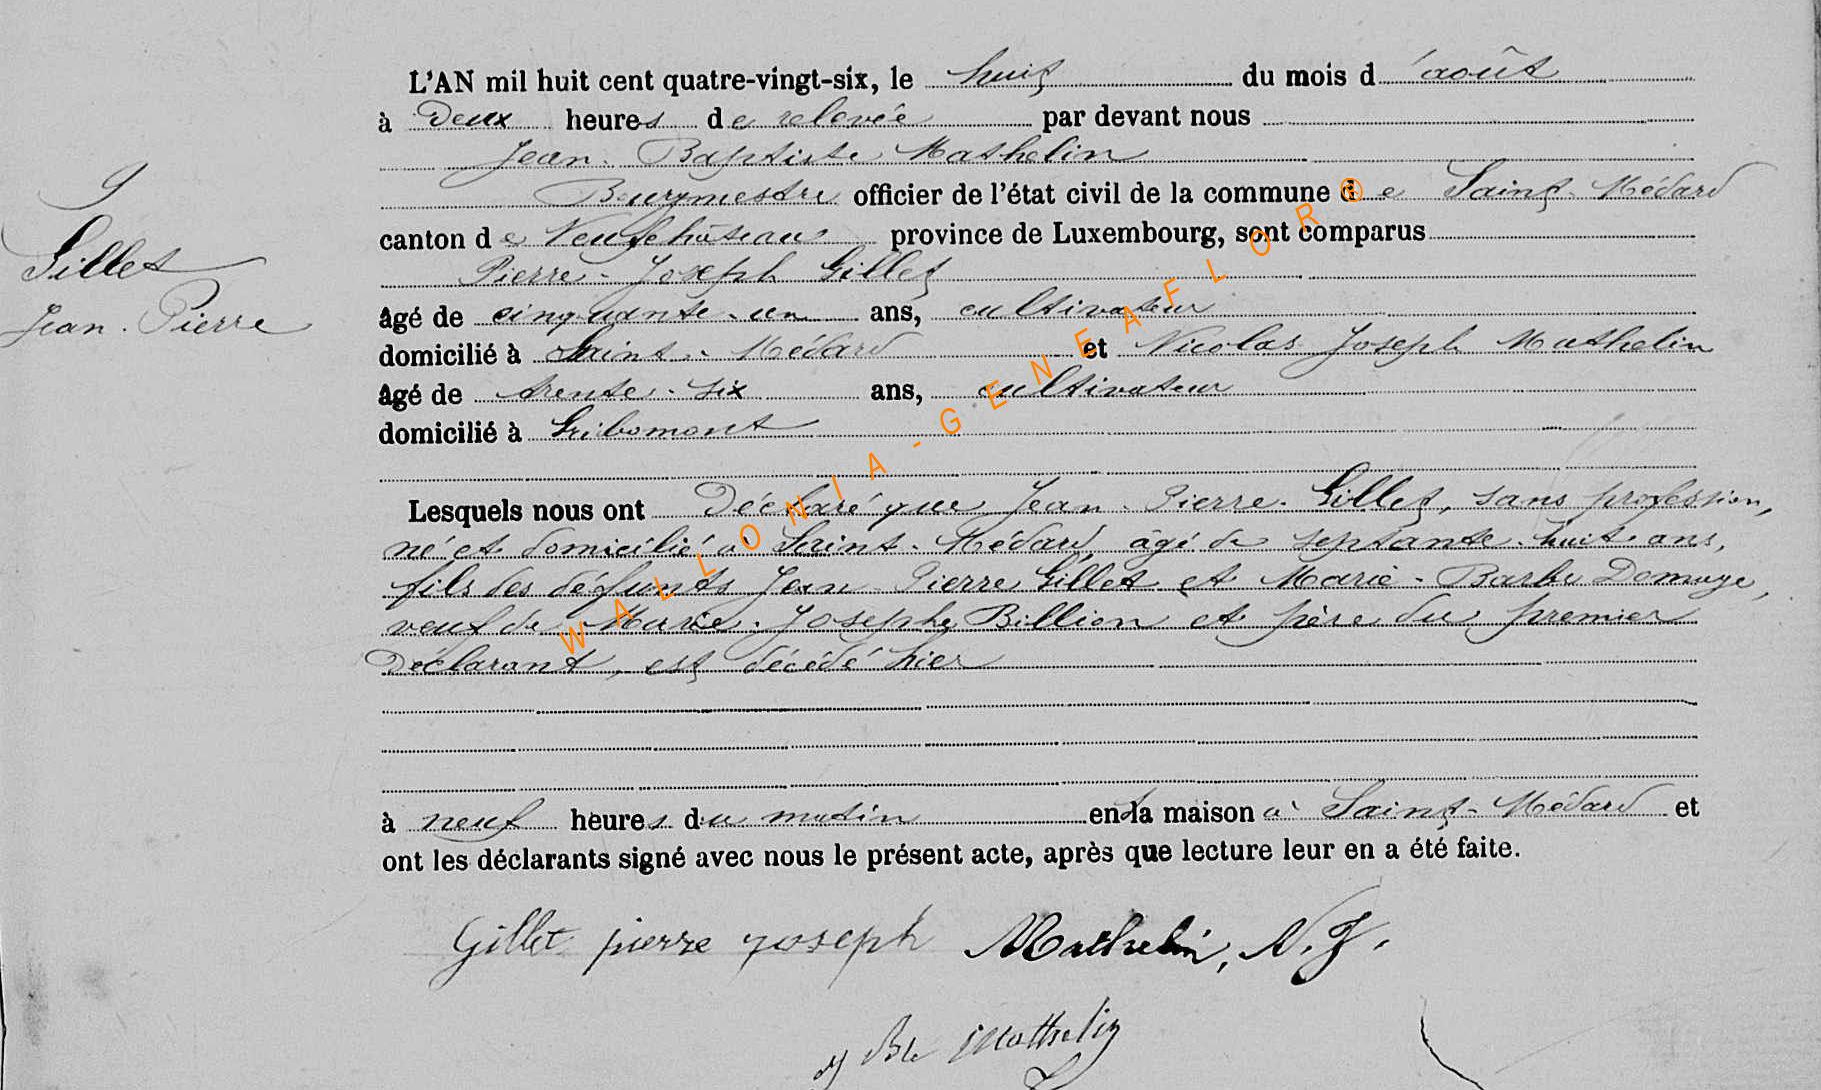 9
Gillet
Jean-Pierre
L'AN mil huit cent quatre-vingt-six, le huit du mois d'août
à deux heures de relevée par devant nous
Jean-Baptiste Mathelin
Bourgmestre officier de l'état civil de la commune de Saint-Médard
canton de Neufchâteau province de Luxembourg, sont comparus
Pierre-Joseph Gillet
âgé de cinquante-un ans, cultivateur
domicilié à Saint-Médard et Nicolas Joseph Mathelin
âgé de trente-six ans, cultivateur
domicilié à Gribomont
Lesquels nous ont déclaré que Jean-Pierre Gillet, sans profession,
né et domicilié à Saint-Médard, âgé de septante-huit ans,
fils des défunts Jean-Pierre Gillet et Marie-Barbe Domage,
veuf de Marie-Josephe Billion et père du premier
déclarant, est décédé hier
à neuf heures du matin en la maison à Saint-Médard et
ont les déclarants signé avec nous le présent acte, après que lecture leur en a été faite.
Gillet pierre joseph Mathelin, N. J.
J Bte Mathelin
WALLONIA-GENEAFLORE